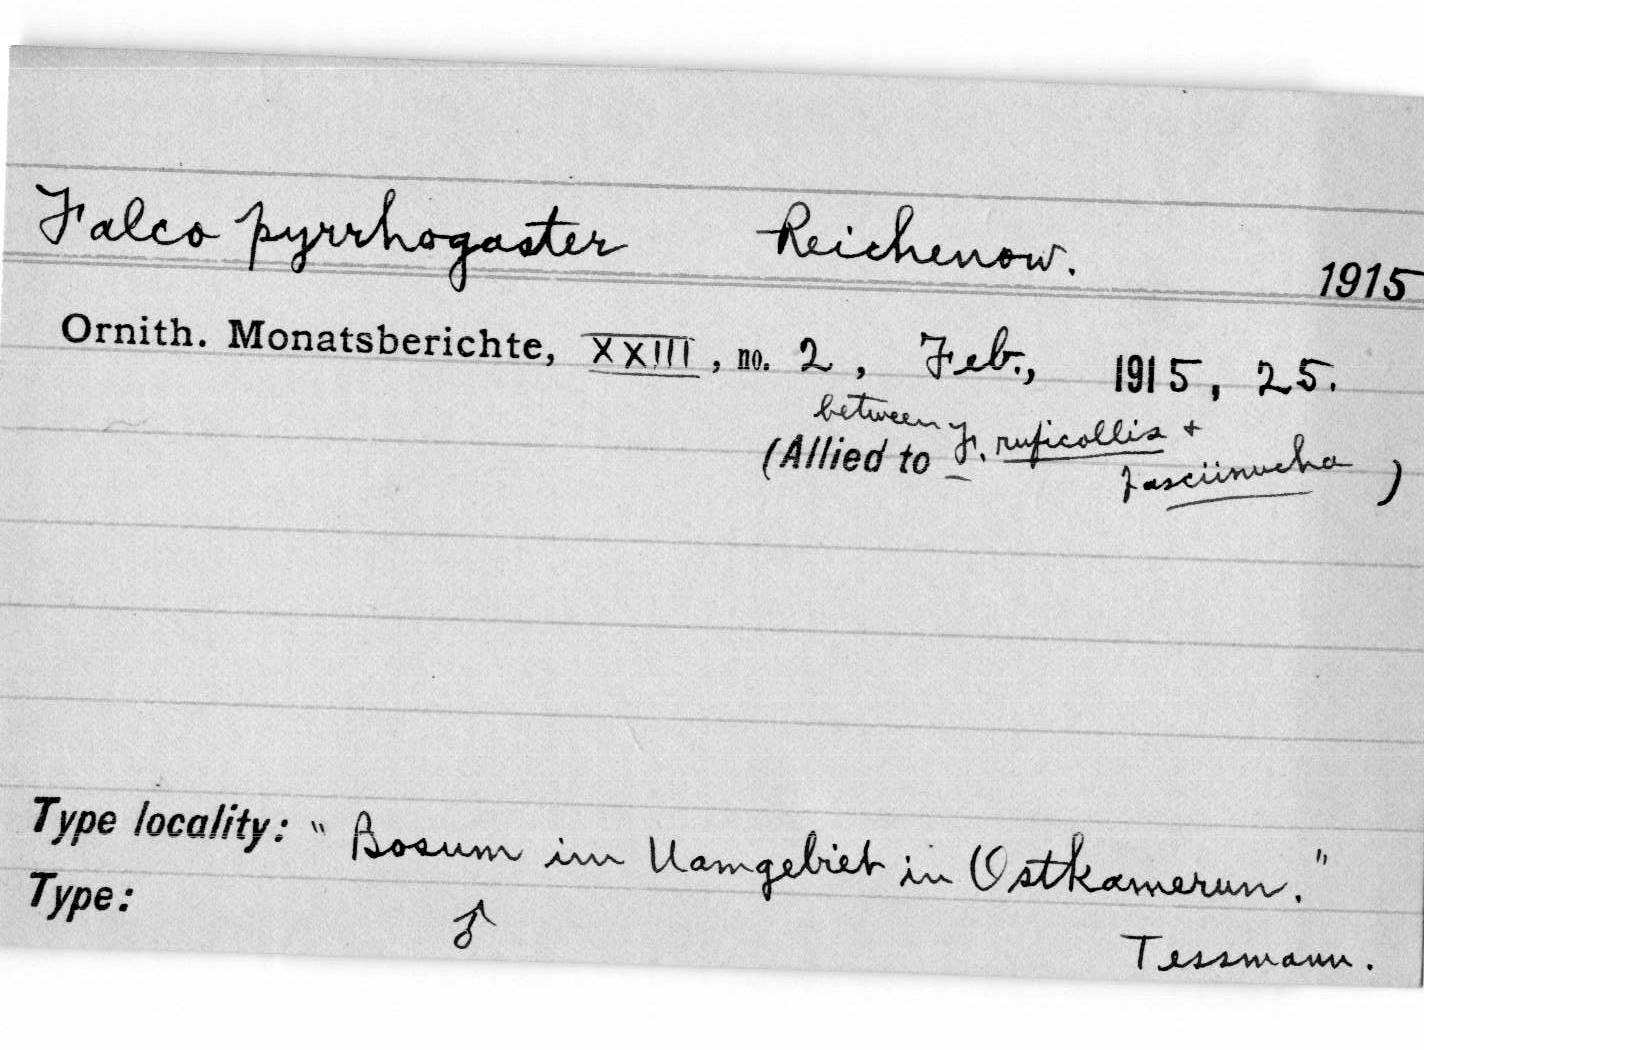 Falco pyrrhogaster Reichenow. 1915
Ornith. Monatsberichte, XXIII, no. 2, Feb., 1915, 25.
between
(Allied to F. ruficollis +
fasciinucha)
Type locality: "Bosum im Uamgebiet in Ostkamerun."
Type: ♂
Tessmann.